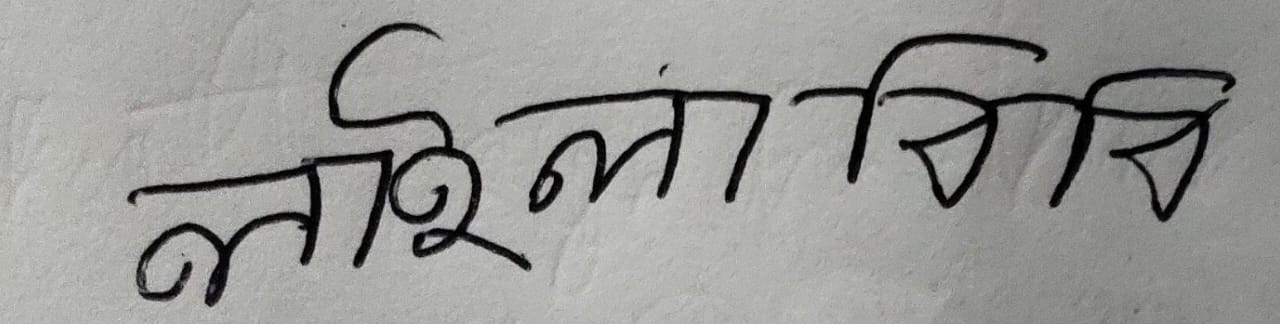 লাইলা বিবি